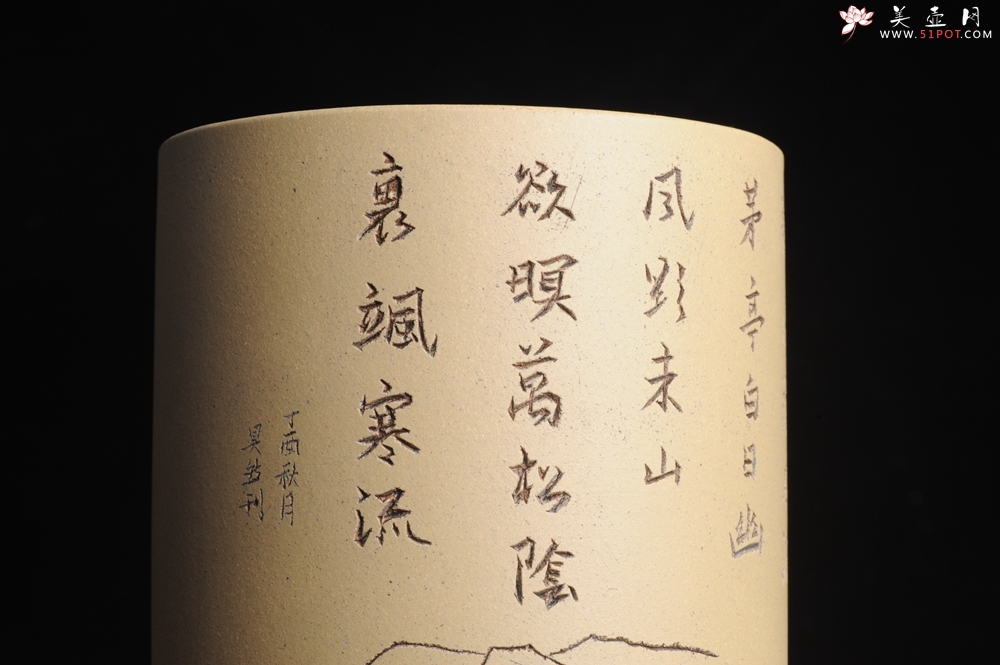 茅亭白日幽
风影未山
欲暝萬松陰
裏颯寒流
丁酉秋月
刊
美壶网
WWW.51POT.COM